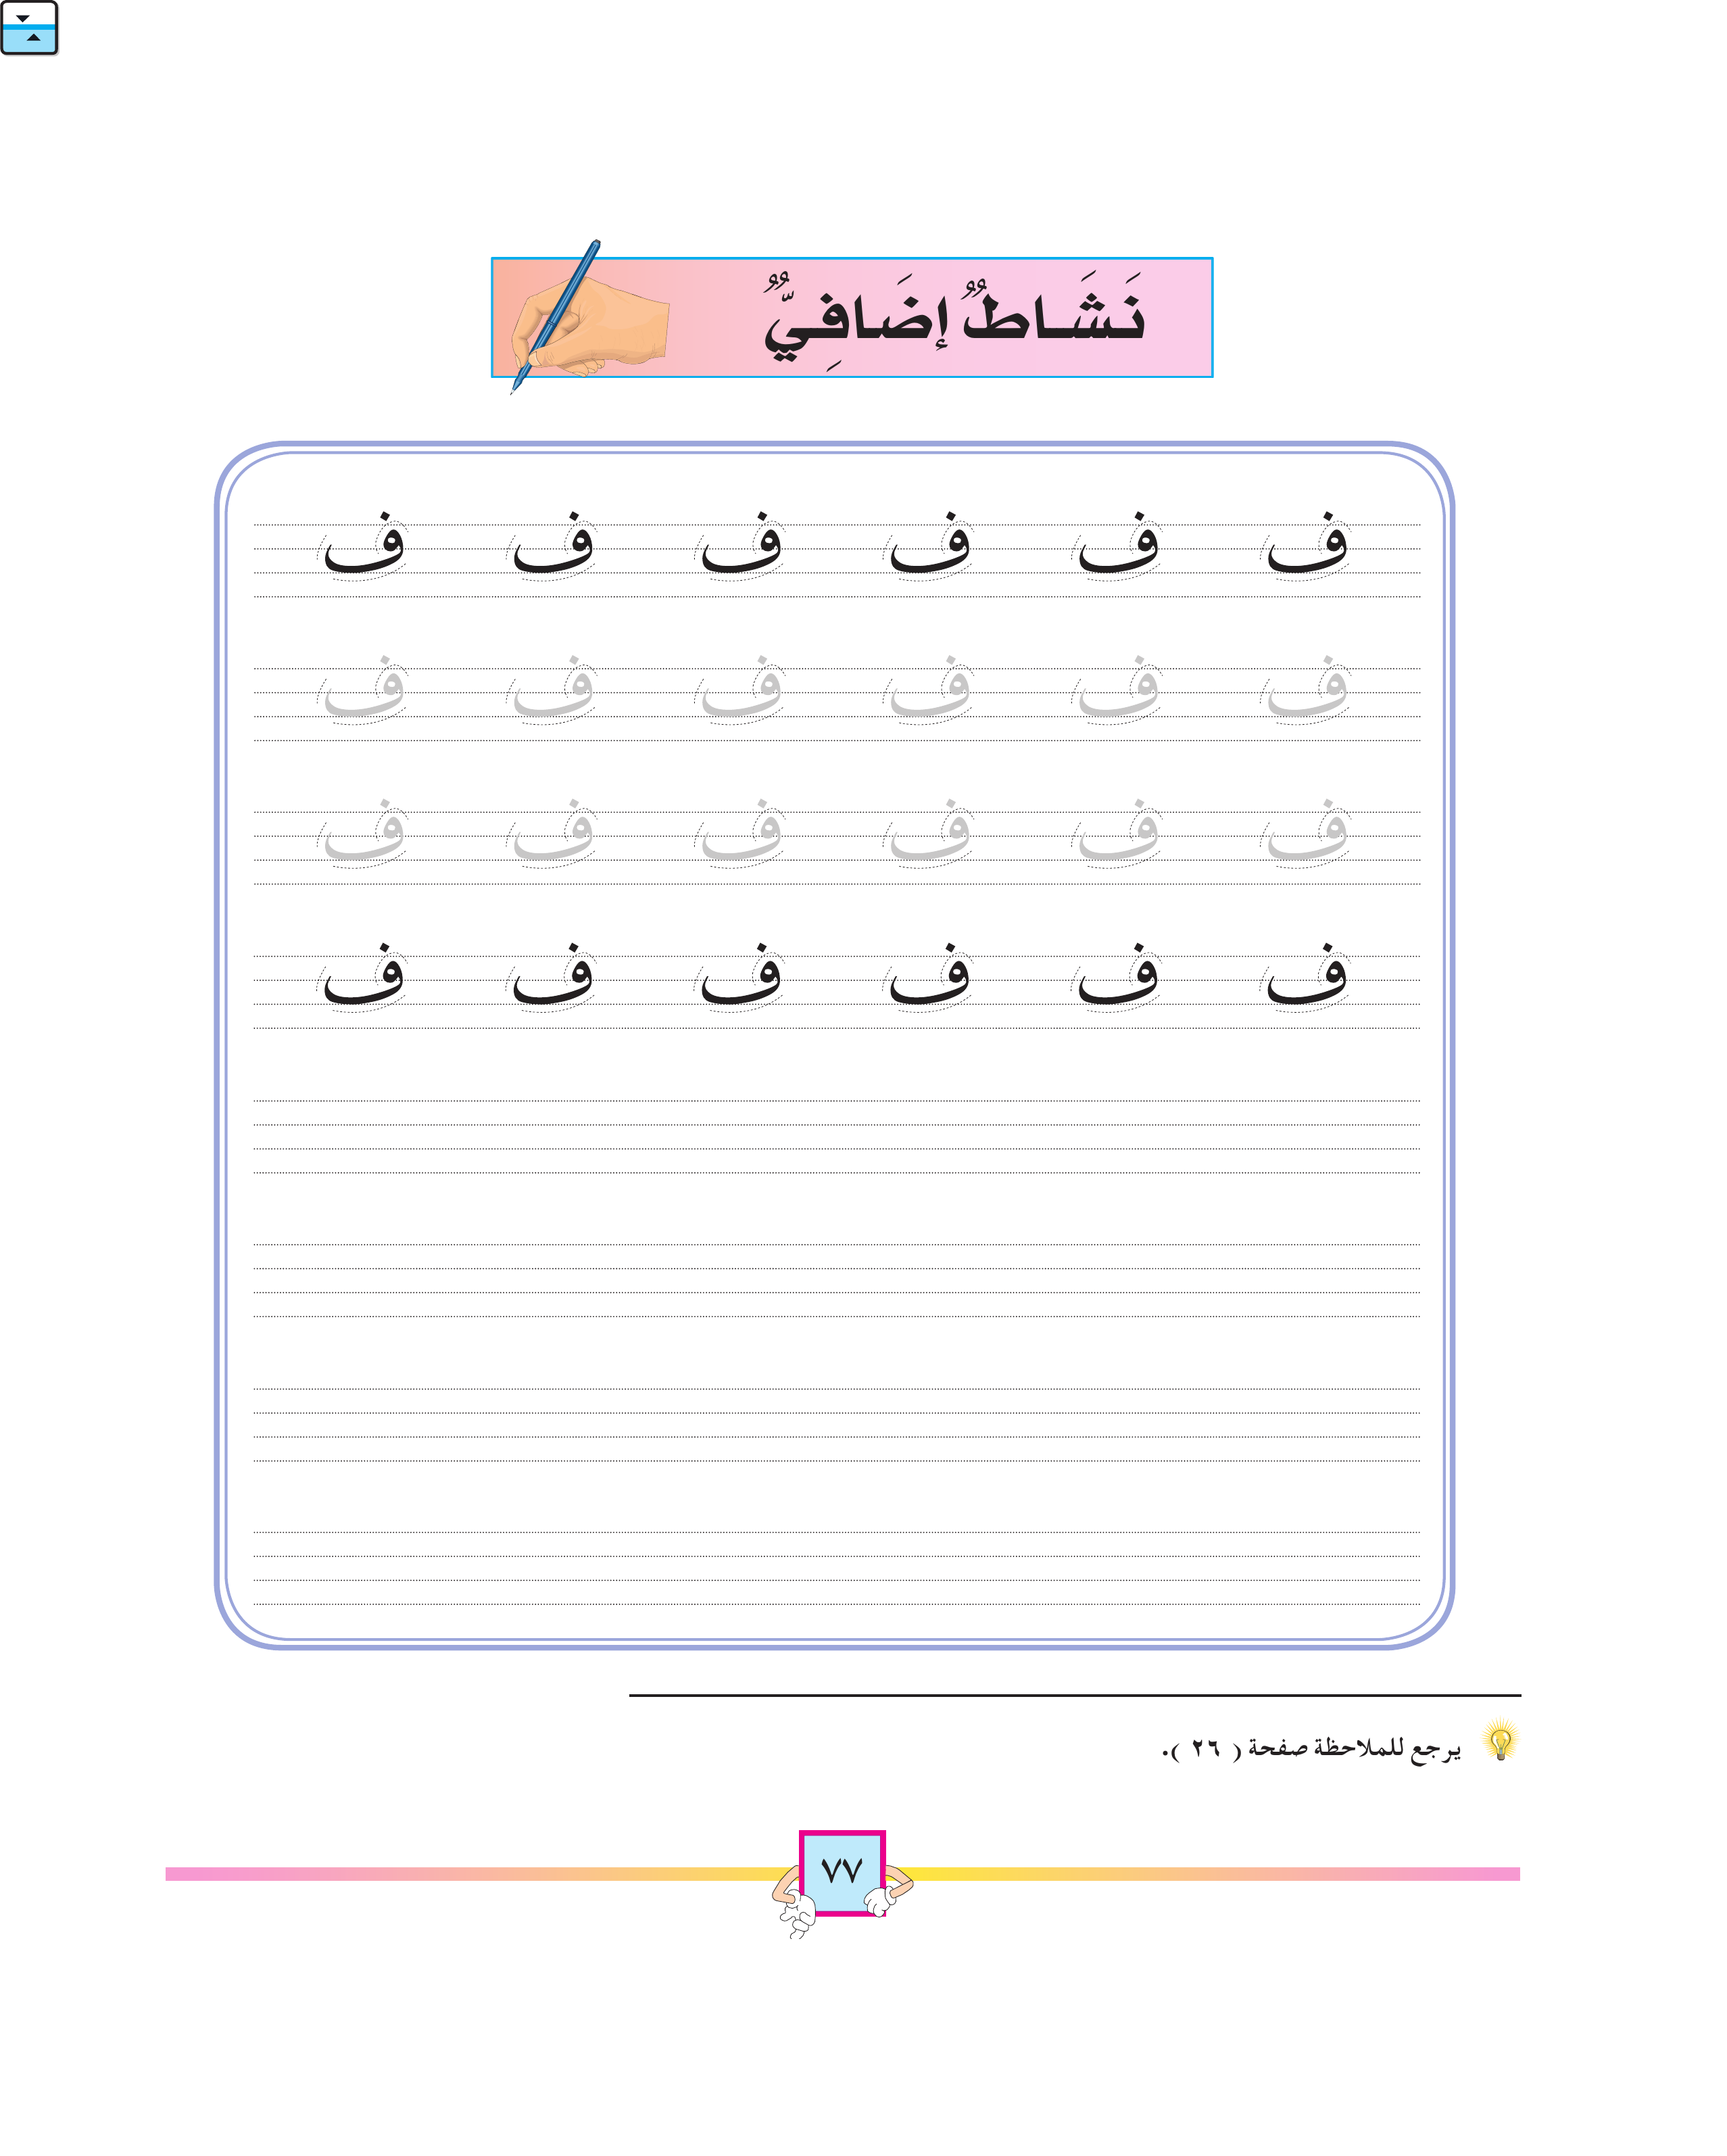 نَشَاطٌ إضَافِيٌّ
ف ف ف ف ف ف
ف ف ف ف ف ف
ف ف ف ف ف ف
ف ف ف ف ف ف
يرجع للملاحظة صفحة ( ٢٦ ).
٧٧